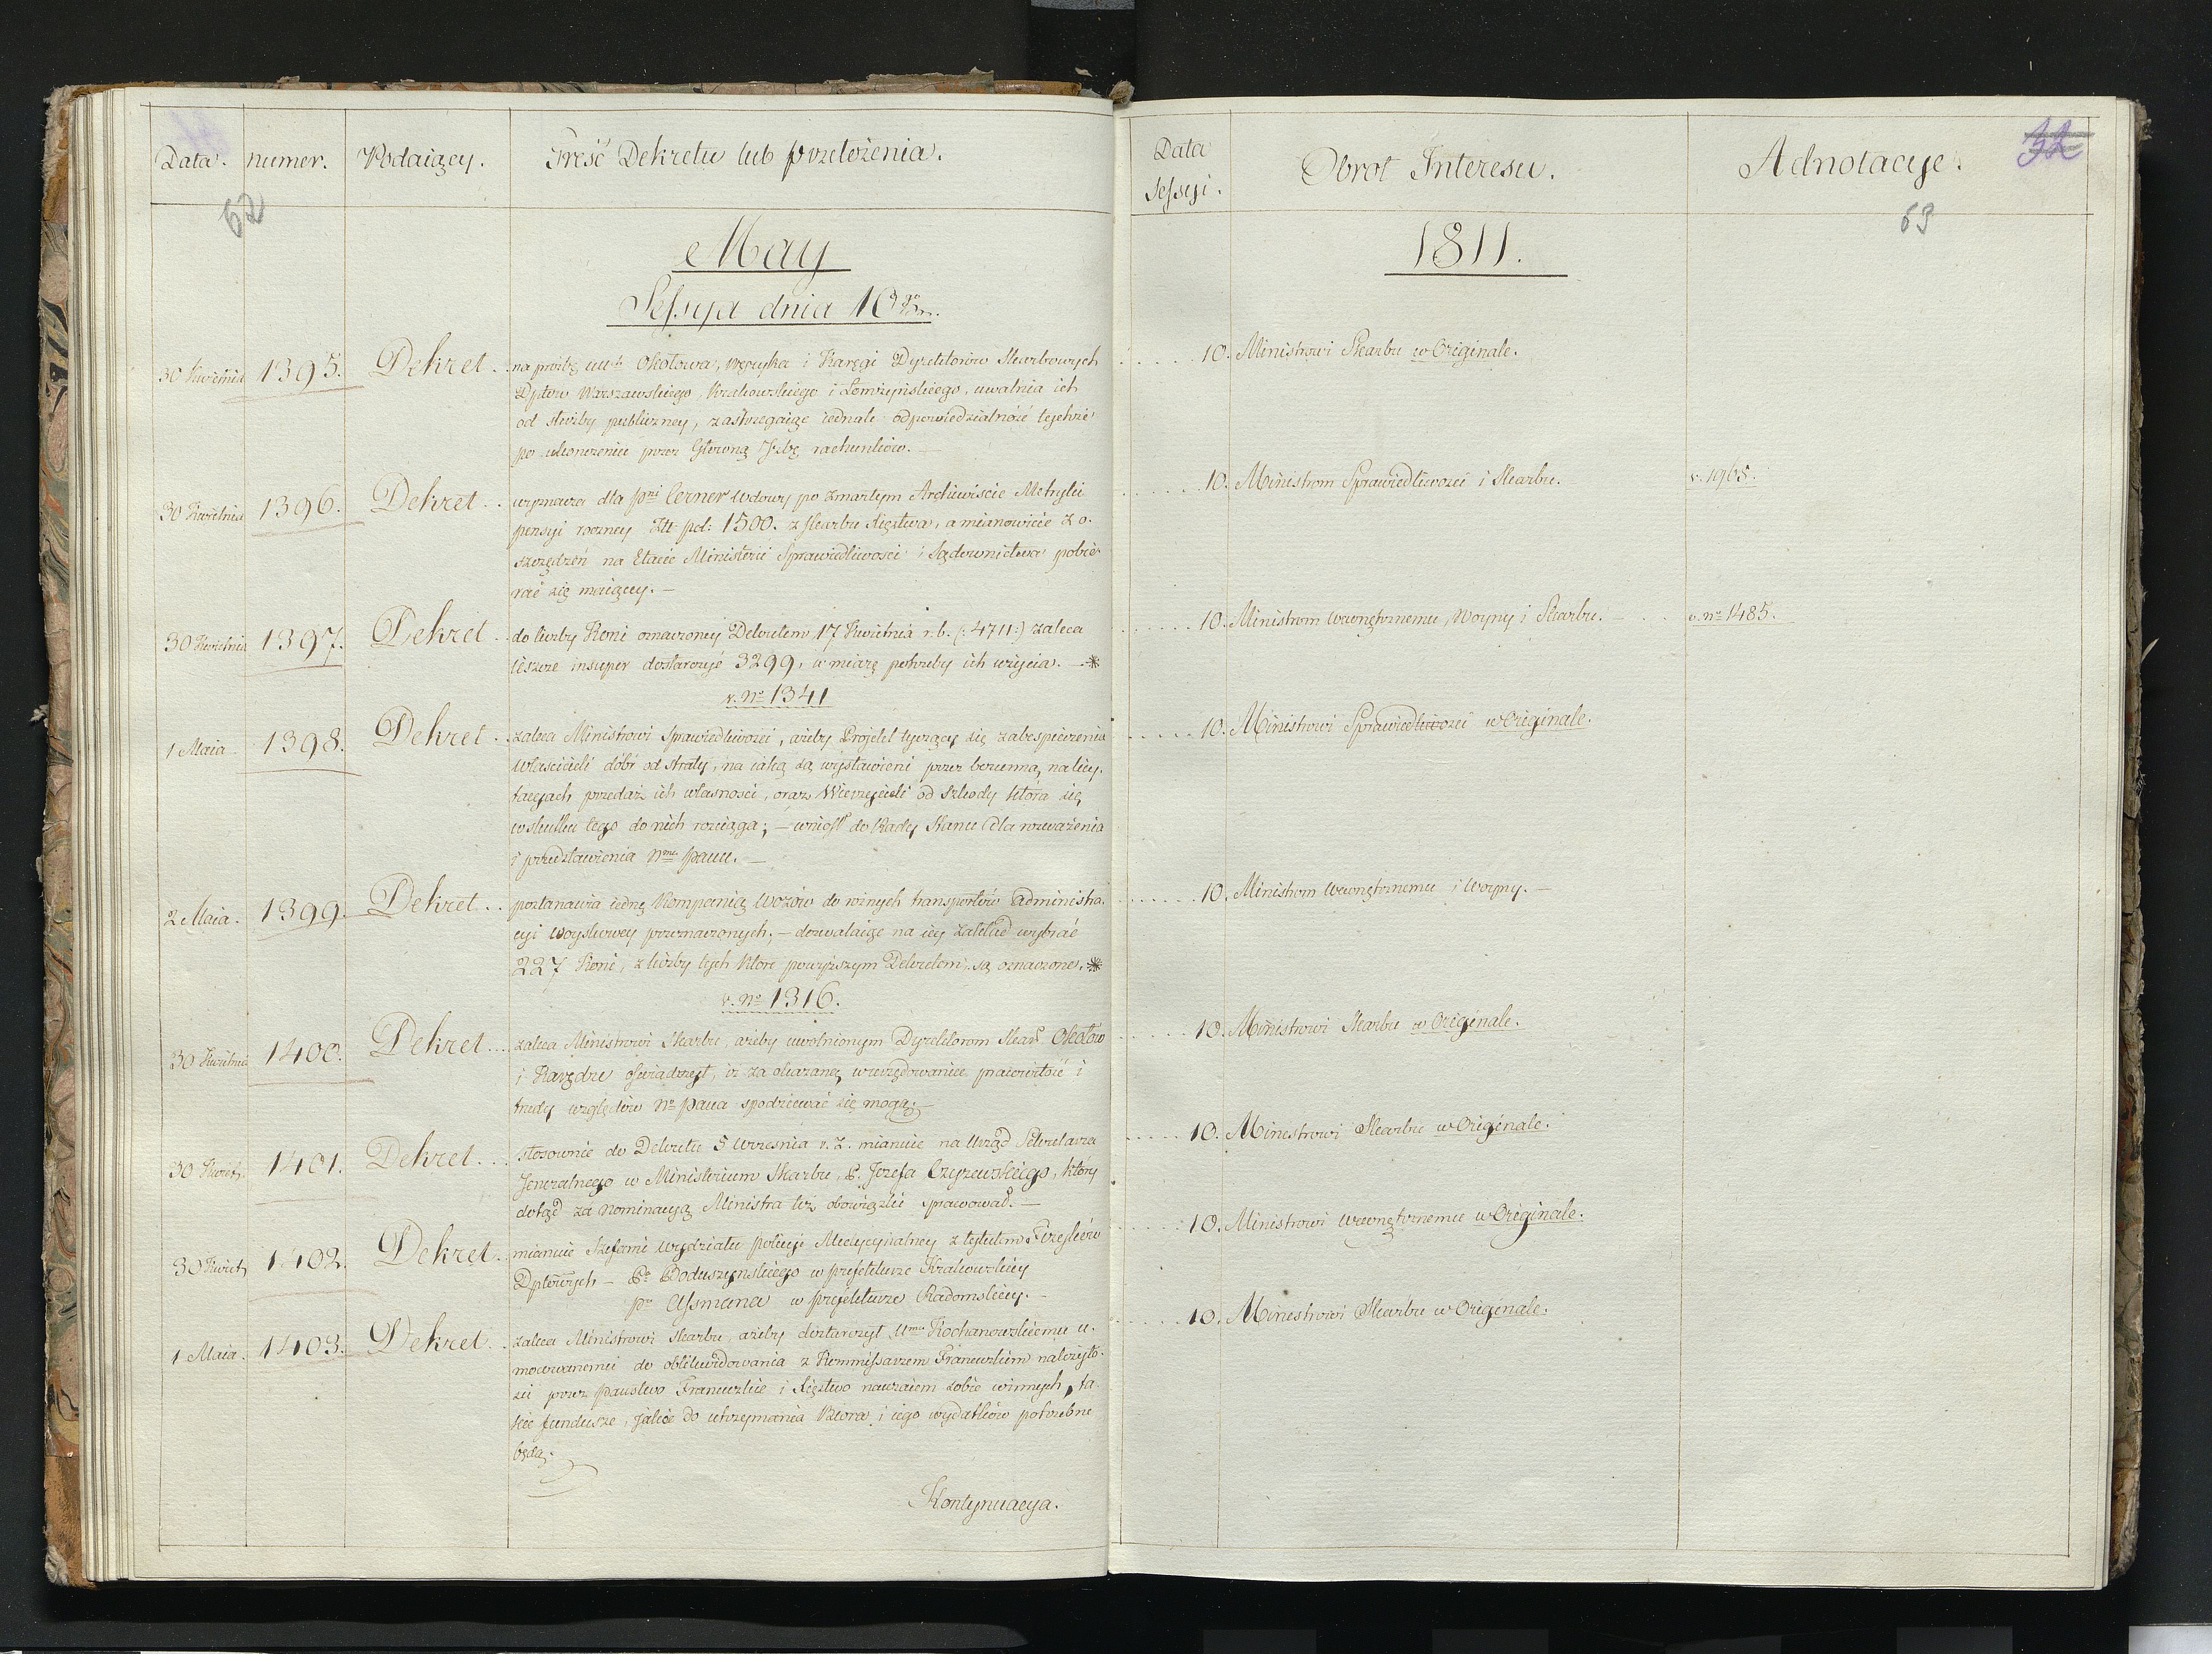 Data. numer. Podaiący. Treść Dekretu lub przełożenia.
62
May
Sessyja dnia 10go
30 Kwietnia 1395. Dekret .. na prośbę Okołowa, Węzyka i Karęgi Dyrektorów Skarbowych
Dptow Warszawskiego, Krakowskiego i Łomżyńskiego, uwalnia ich
od służby publiczney, zastrzegaiąc iednak odpowiedzialność teyże
po ukończeniu przez Głowną Izbę rachunków. —
30 Kwietnia 1396. Dekret .. wyznacza dla Pni Cerner wdowy po zmarłym Archiwiście Metryki
pensyi roczney Złt. pol: 1500. z Skarbu Xięstwa, a mianowicie z o-
szczędzeń na Etacie Ministerii Sprawiedliwosci i Sądownictwa pobie-
rać się maiącey. —
30 Kwietnia 1397. Dekret .. do liczby Koni oznaczoney Dekretem 17 Kwietnia r. b. (: 4711 :) zaleca
ieszcze insuper dostarczyć 3299, w miarę potrzeby ich użycia. — *
v. No 1341
1 Maia. 1398. Dekret .. zaleca Ministrowi Sprawiedliwosci, ażeby Projekt tyczący się zabespieczenia
Właścicieli dóbr od straty, na iaką są wystawieni przez bezcenną na licy-
tacyach przedaż ich własnosci, oraz Wierzycieli od szkody która się
w skutku tego do nich rozciąga; — wniósł do Rady Stanu dla rozważenia
i przedstawienia Nmu Panu. —
2 Maia. 1399. Dekret .. postanawia iedną Kompanią Wozów do rożnych transportów administra-
cyi woyskowey przeznaczonych; — dozwalaiąc na iey zakład wybrać
227 Koni, z liczby tych które powyższym Dekretem są oznaczone. *
v. No 1316.
30 Kwietnia 1400. Dekret .... zaleca Ministrowi Skarbu, ażeby uwolnionym Dyrektorom Skar. Okołow
i Karędze oświadczył, iż za okazaną w urzędowaniu pracowitość i
trudy względów No Pana spodziewać się mogą. —
30 Kwiet. 1401. Dekret ... stosownie do Dekretu 5 Wrzesnia r. z. mianuie na Urząd Sekretarza
Jeneralnego w Ministerium Skarbu, P. Jozefa Czyzewskiego, który
dotąd za nominacyą Ministra też obowiązki sprawował. —
30 Kwiet. 1402. Dekret .. mianuie Szefami wydziału policyi Medycynalney z tytułem Fizyków
Dptowych — Pa Boduszynskiego w prefekturze Krakowskiey
Pa Assmana w prefekturze Radomskiey. —
1 Maia. 1403. Dekret .. zaleca Ministrowi Skarbu, ażeby dostarczył Kochanowskiemu u-
mocowanemu do oblikwidowania z Kommissarzem Francuzkim należyto-
sci przez Panstwo Francuzkie i Xięstwo nawzaiem sobie winnych, ta-
kie fundusze, jakie do utrzymania Biora i iego wydatków potrzebne
będą.
Kontynuacya.
Data Sessyi. Obrot Interesu. Adnotacyje. 32
63
1811.
.... 10. Ministrowi Skarbu w Originale.
...... 10. Ministrom Sprawiedliwosci i Skarbu. v. 1965.
...... 10. Ministrom Wewnętrznemu, Woyny i Skarbu. — . . v. No 1485.
.... 10. Ministrowi Sprawiedliwosci w Originale.
...... 10. Ministrom Wewnętrznemu i Woyny. —
..... 10. Ministrowi Skarbu w Originale.
..... 10. Ministrowi Skarbu w Originale.
..... 10. Ministrowi Wewnętrznemu w Originale.
..... 10. Ministrowi Skarbu w Originale.